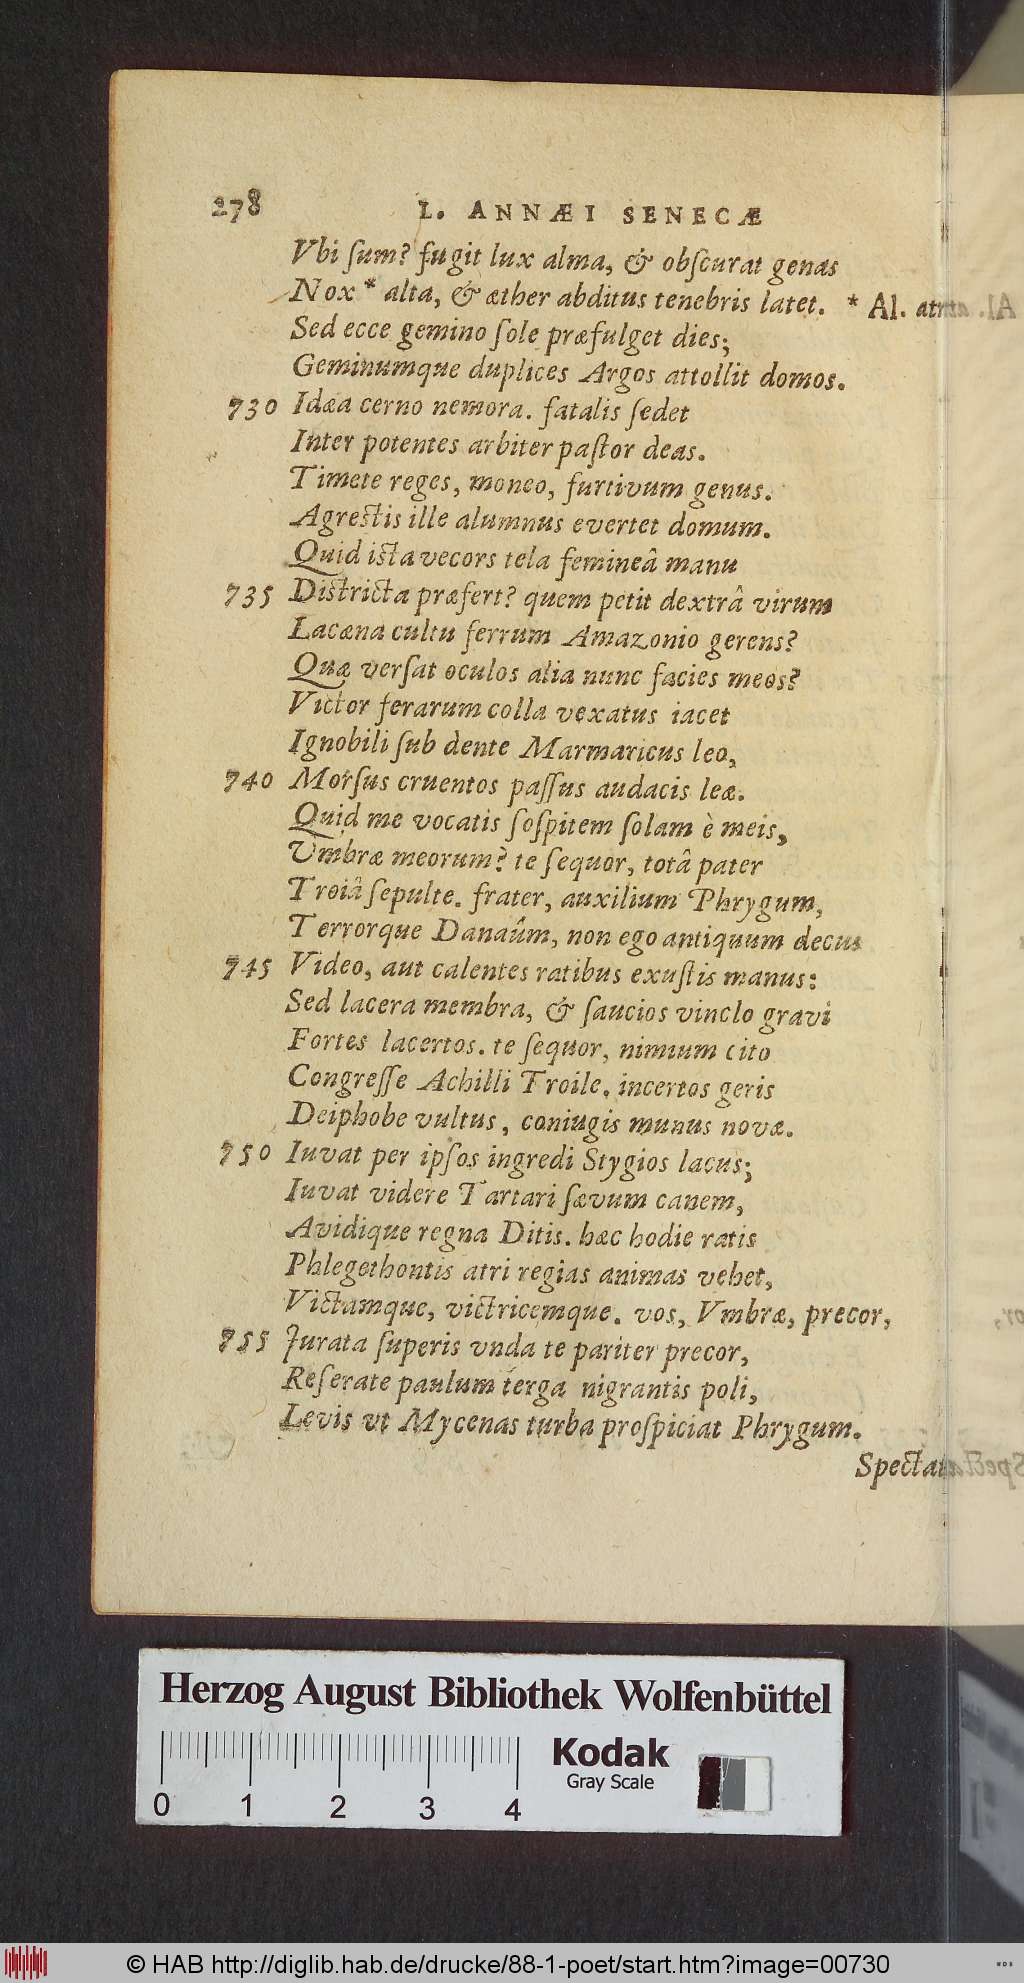 278 L. ANNÆI SENECÆ
Vbi ſum? fugit lux alma, & obſcurat genas
Nox * alta, & æther abditus tenebris latet. * Al. atra
Sed ecce gemino ſole præfulget dies;
Geminumque duplices Argos attollit domos.
730 Idæa cerno nemora. fatalis ſedet
Inter potentes arbiter paſtor deas.
Timete reges, moneo, furtivum genus.
Agrestis ille alumnus evertet domum.
Quid ista vecors tela femineâ manu
735 Districta præfert? quem petit dextrâ virum
Lacæna cultu ferrum Amazonio gerens?
Quæ verſat oculos alia nunc facies meos?
Victor ferarum colla vexatus iacet
Ignobili ſub dente Marmaricus leo,
740 Morſus cruentos paſſus audacis leæ.
Quid me vocatis ſoſpitem ſolam è meis,
Vmbræ meorum? te ſequor, totâ pater
Troiâ ſepulte. frater, auxilium Phrygum,
Terrorque Danaûm, non ego antiquum decus
745 Video, aut calentes ratibus exuſtis manus:
Sed lacera membra, & ſaucios vinclo gravi
Fortes lacertos. te ſequor, nimium cito
Congreſſe Achilli Troile. incertos geris
Deiphobe vultus, coniugis munus novæ.
750 Iuvat per ipſos ingredi Stygios lacus;
Iuvat videre Tartari ſævum canem,
Avidique regna Ditis. hæc hodie ratis
Phlegethontis atri regias animas vehet,
Victamque, victricemque. vos, Vmbræ, precor,
755 Jurata ſuperis vnda te pariter precor,
Reſerate paulum terga nigrantis poli,
Levis vt Mycenas turba proſpiciat Phrygum.
Spectate
Herzog August Bibliothek Wolfenbüttel
Kodak
Gray Scale
0 1 2 3 4
© HAB http://diglib.hab.de/drucke/88-1-poet/start.htm?image=00730